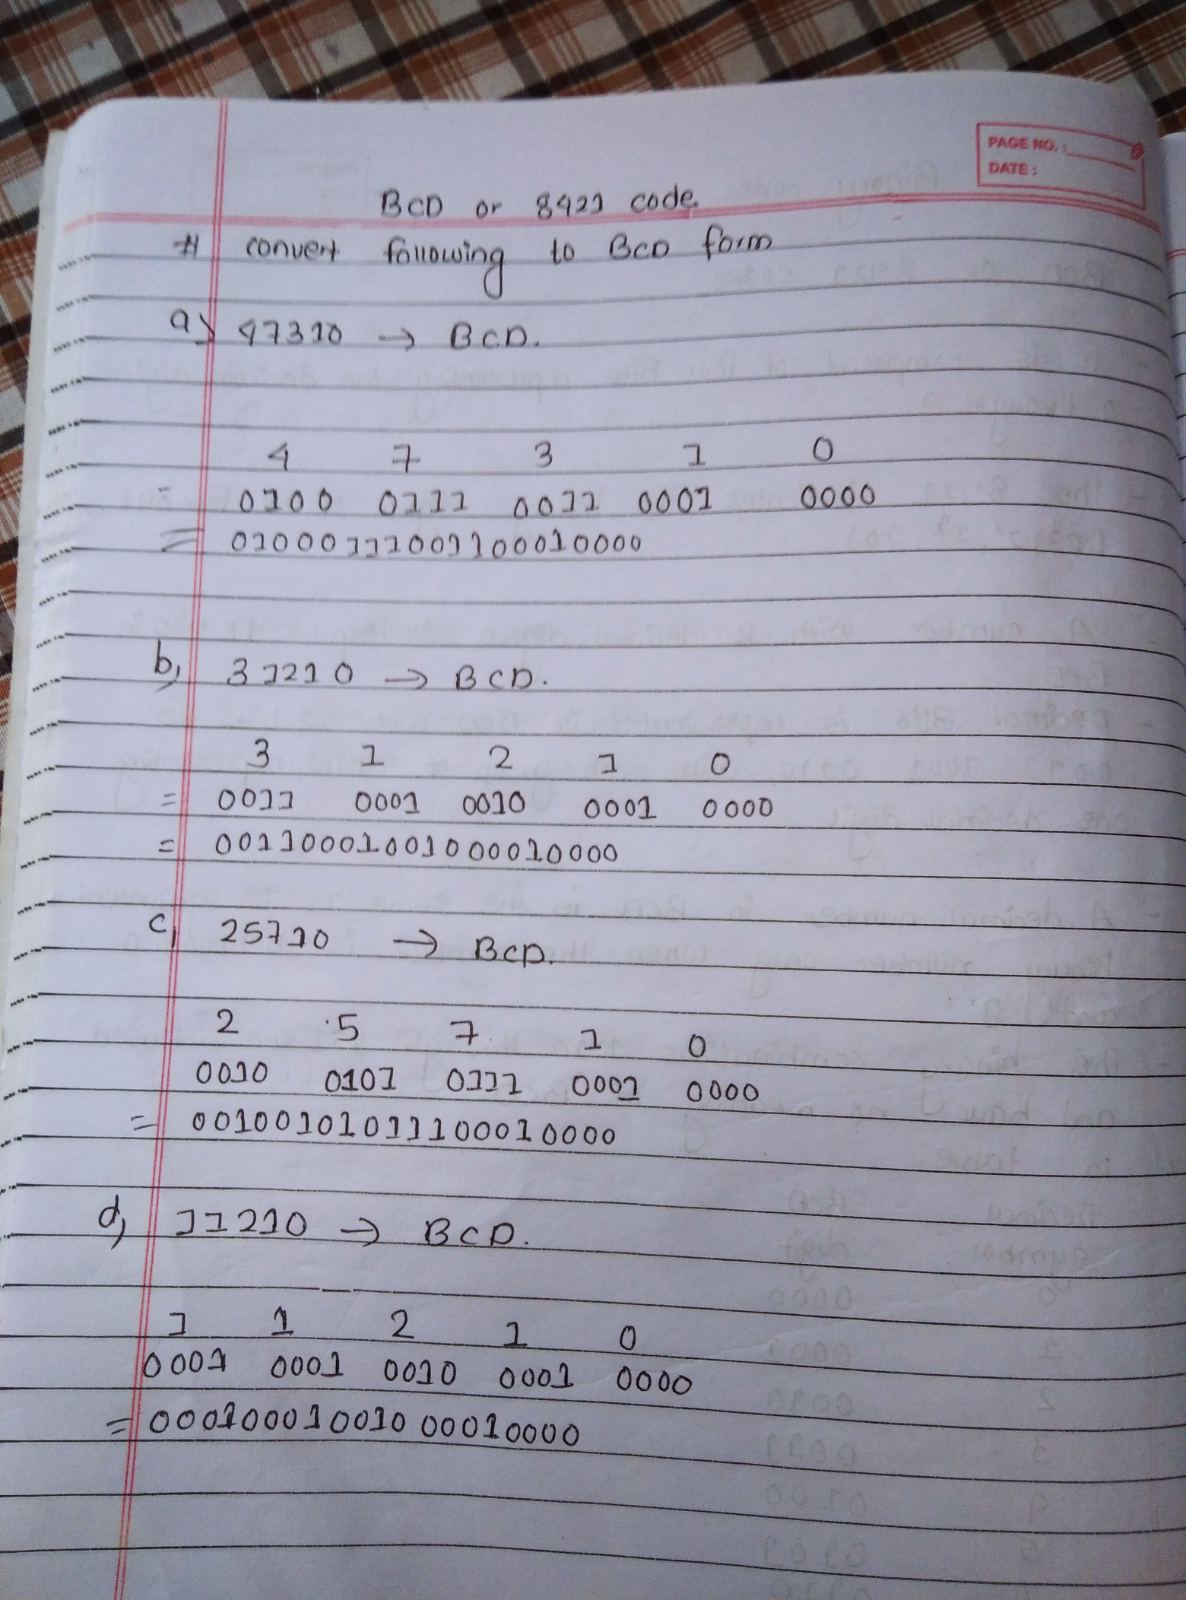 PAGE NO.:
DATE:
BCD or 8421 code.
# convert following to BCD form
a) 47310 → BCD.
4 7 3 1 0
= 0100 0111 0011 0001 0000
= 01000111001100010000
b) 31210 → BCD.
3 1 2 1 0
= 0011 0001 0010 0001 0000
= 00110001001000010000
c) 25710 → BCD.
2 5 7 1 0
0010 0101 0111 0001 0000
= 00100101011100010000
d) 11210 → BCD.
1 1 2 1 0
0001 0001 0010 0001 0000
= 000100010010 00010000